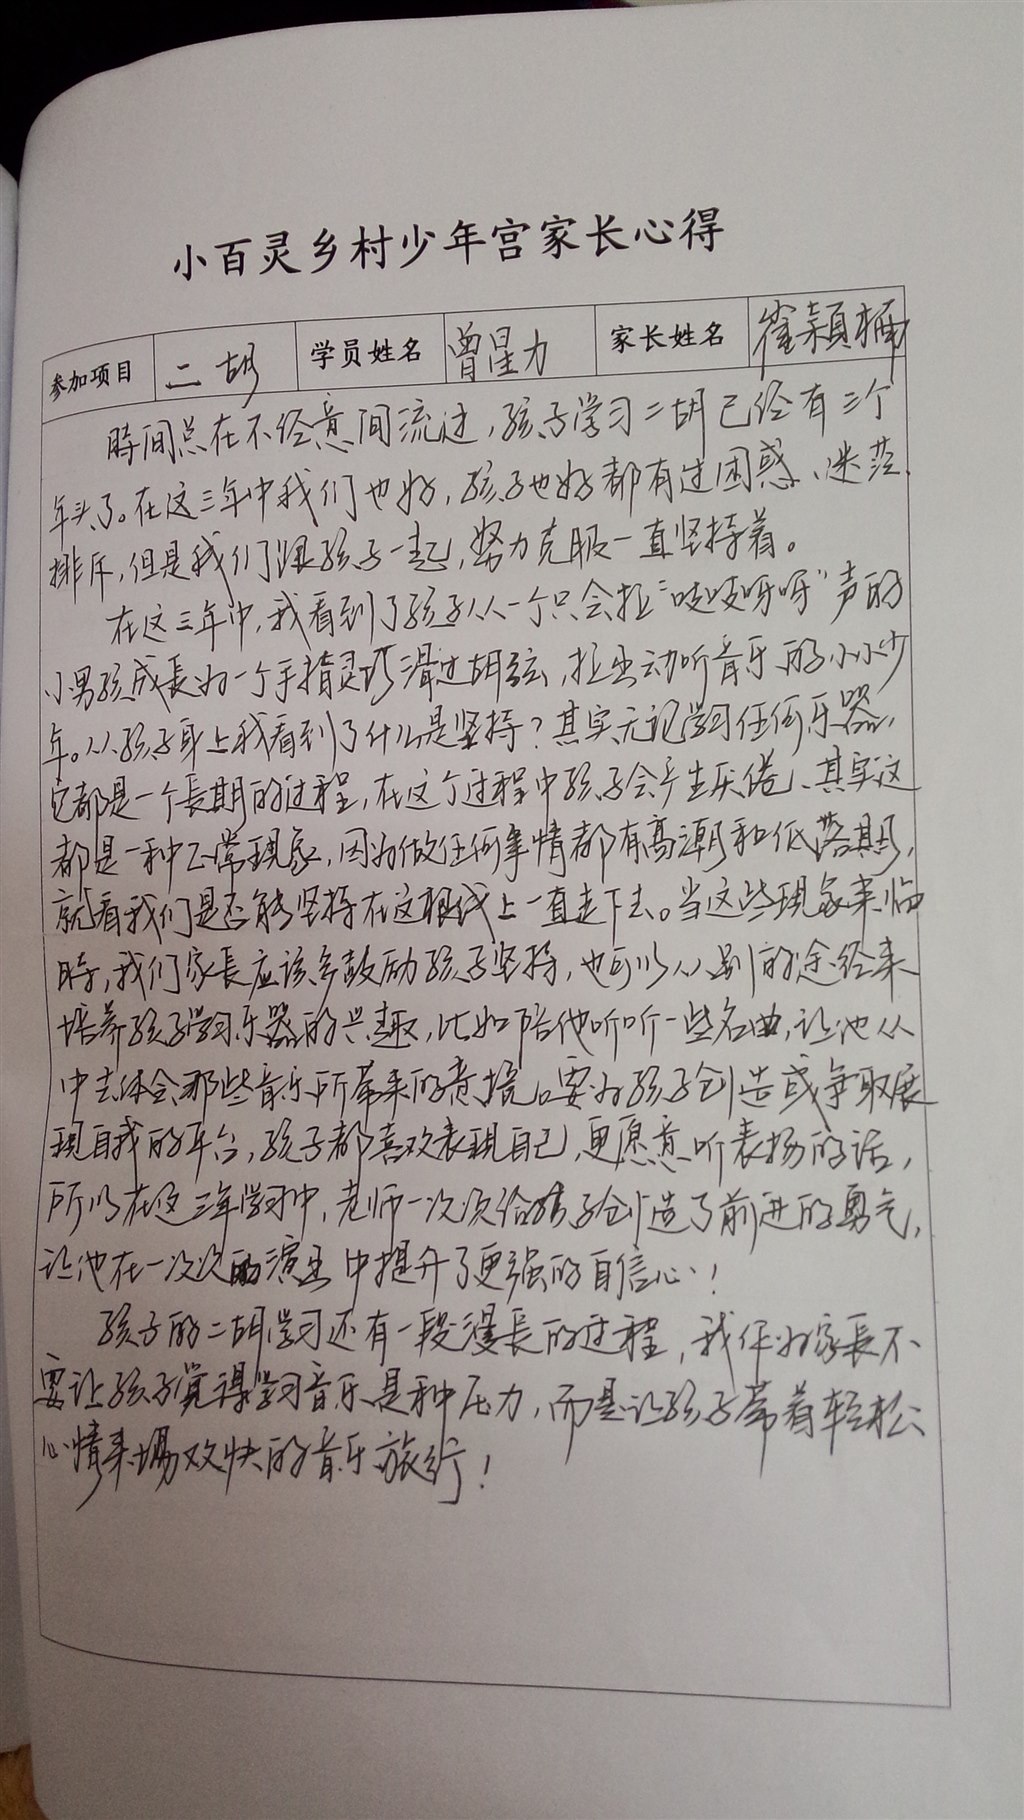 小百灵乡村少年宫家长心得
参加项目 二胡 学员姓名 曾星力 家长姓名 崔颖楠
時间总在不经意间流过,孩子学习二胡已经有三个
年头了。在这三年中我们也好,孩子也好都有过困惑、迷茫、
排斥,但是我们跟孩子一起,努力克服一直坚持着。
在这三年中,我看到了孩子从一个只会拉“吱吱呀呀”声的
小男孩成長为一个手指灵巧滑过胡弦,拉出动听音乐的小小少
年。从孩子身上我看到了什么是坚持?其实无论学习任何乐器,
它都是一个長期的过程,在这个过程中孩子会产生厌倦、其实这
都是一种正常現象,因为做任何事情都有高潮和低落期,
就看我们是否能够坚持在这根线上一直走下去。当这些現象来临
時,我们家長应该多鼓励孩子坚持,也可以从别的途经来
培养孩子学习乐器的兴趣,比如陪他听听一些名曲,让他从
中去体会那些音乐所带来的意境。要为孩子创造或争取展
現自我的平台,孩子都喜欢表現自己,更愿意听表扬的话,
所以在这三年学习中,老师一次次给孩子创造了前进的勇气,
让他在一次次的演出中提升了更强的自信心!
孩子的二胡学习还有一段漫長的过程,我作为家長不
要让孩子觉得学习音乐是种压力,而是让孩子带着轻松
心情来場欢快的音乐旅行!